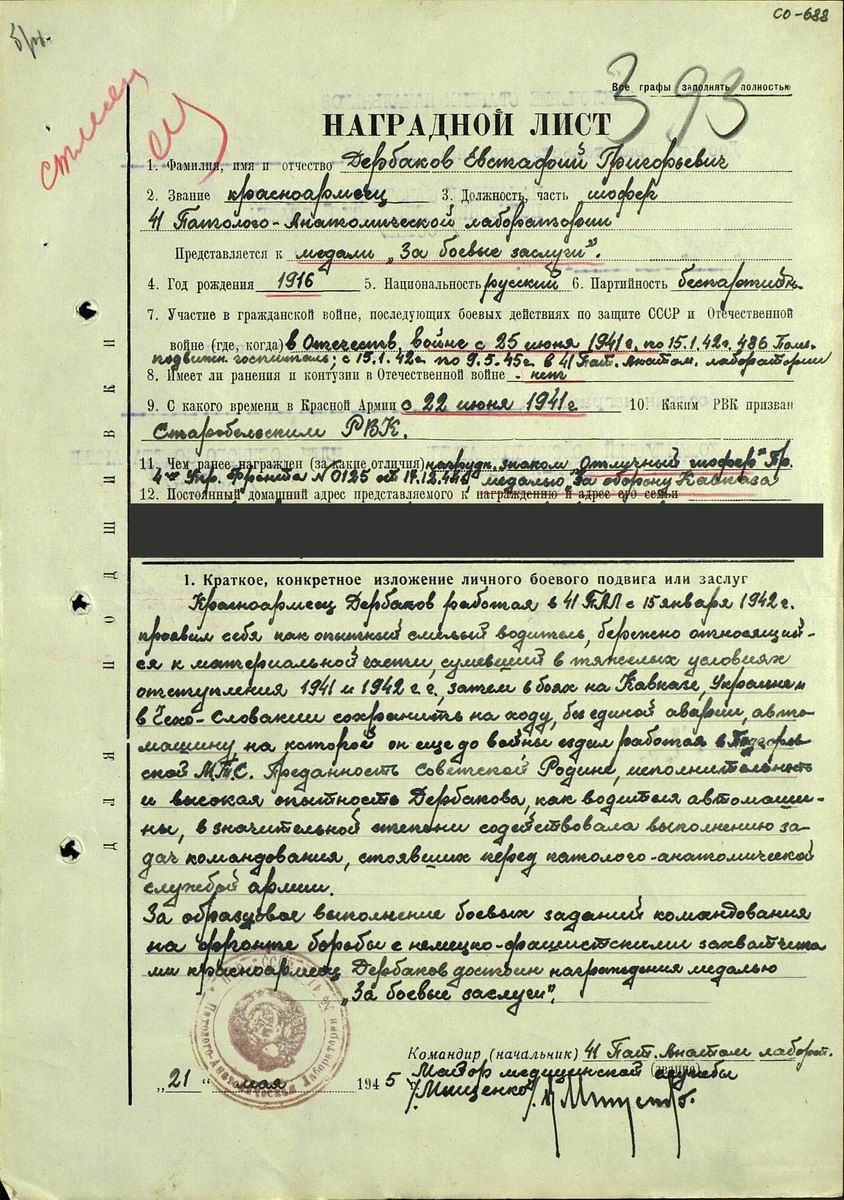 СО-688
393
Все графы заполнять полностью
НАГРАДНОЙ ЛИСТ
1. Фамилия, имя и отчество Дербаков Евстафий Григорьевич
2. Звание красноармеец 3. Должность, часть шофер
41 Патолого-Анатомической лаборатории
Представляется к медали „За боевые заслуги".
4. Год рождения 1916 5. Национальность русский 6. Партийность беспартийн.
7. Участие в гражданской войне, последующих боевых действиях по защите СССР и Отечественной
войне (где, когда) в Отечеств. войне с 25 июня 1941 г. по 15.1.42г. 486 Поле-
подвижн. госпиталь; с 15.1.42г. по 9.5.45г. в 41 Пат. Анатом. лаборатории
8. Имеет ли ранения и контузии в Отечественной войне - нет
9. С какого времени в Красной Армии с 22 июня 1941 г. 10. Каким РВК призван
Старобельским РВК.
11. Чем ранее награжден (за какие отличия) нагрудн. знаком „Отличный шофер" Пр.
4го Укр. Фронта N 0125 от 17.12.44г. медалью „За оборону Кавказа
12. Постоянный домашний адрес представляемого к награждению и адрес его семьи
ДЛЯ ПОДШИВКИ
1. Краткое, конкретное изложение личного боевого подвига или заслуг
Красноармеец Дербаков работая в 41 ПАЛ с 15 января 1942 г.
проявил себя как опытный смелый водитель, бережно относящий-
ся к материальной части, сумевший в тяжелых условиях
отступления 1941 и 1942 г.г., затем в боях на Кавказе, Украине и
в Чехо-Словакии сохранить на ходу, без единой аварии, авто-
машину на которой он еще до войны ездил работая в
ской М.Т.С. Преданность Советской Родине, исполнительность
и высокая опытность Дербакова, как водителя автомаши-
ны, в значительной степени содействовала выполнению за-
дач командования, стоявших перед патолого-анатомической
службой армии.
За образцовое выполнение боевых заданий командования
на фронте борьбы с немецко-фашистскими захватчика
ми красноармеец Дербаков достоин награждения медалью
„За боевые заслуги".
Командир (начальник) 41 Пат. Анатом лаборат.
Майор медицинской службы
(звание)
„21" мая 1945 /Мищенко/